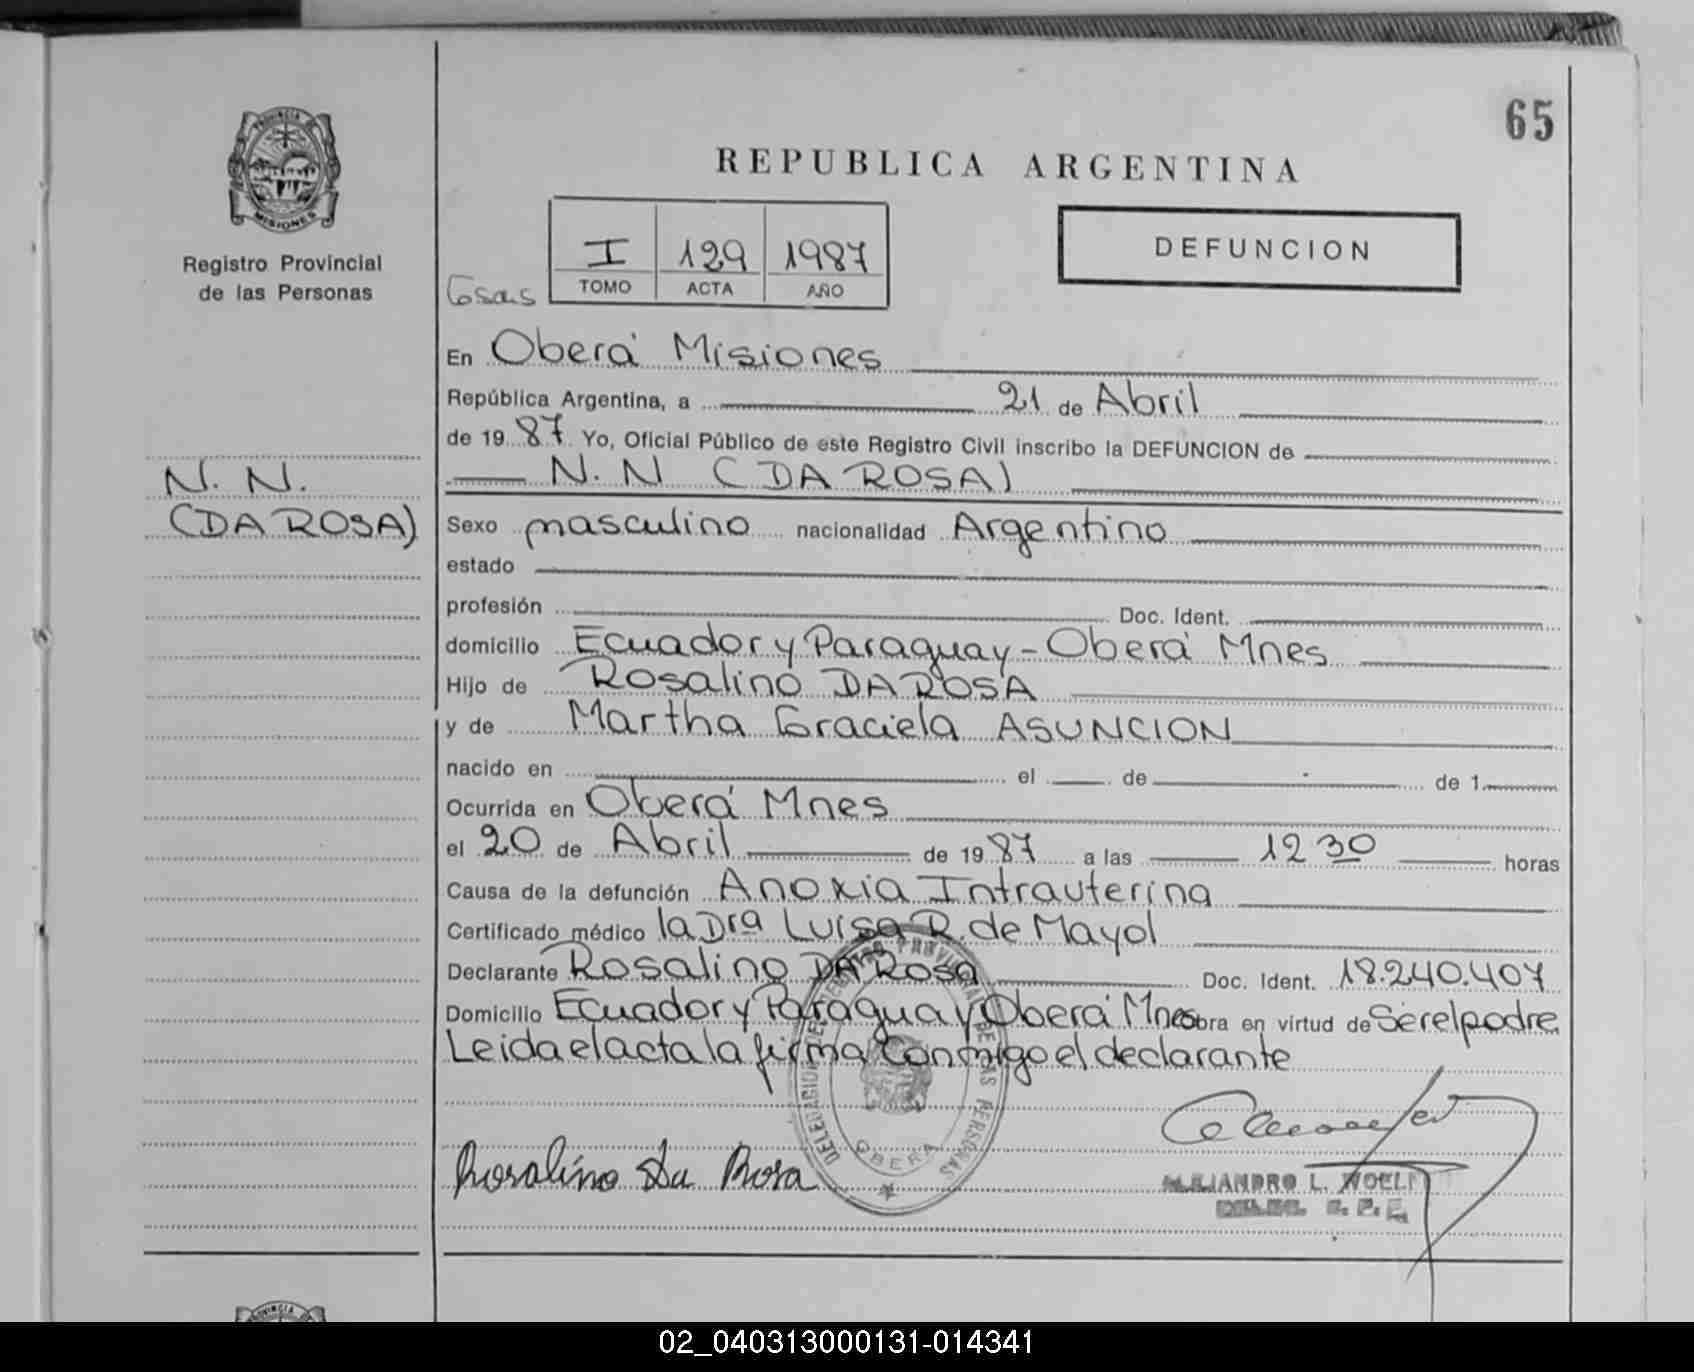 65
PROVINCIA DE
MISIONES
REPUBLICA ARGENTINA
Registro Provincial
de las Personas
I 129 1987
TOMO ACTA AÑO
DEFUNCION
En Oberá Misiones
República Argentina, a 21 de Abril
de 1987 Yo, Oficial Público de este Registro Civil inscribo la DEFUNCION de
N. N.
(DA ROSA)
N. N (DA ROSA)
Sexo masculino nacionalidad Argentino
estado
profesión Doc. Ident.
domicilio Ecuador y Paraguay - Oberá Mnes
Hijo de Rosalino DA ROSA
y de Martha Graciela ASUNCION
nacido en el de de 1
Ocurrida en Oberá Mnes
el 20 de Abril de 1987 a las 12 30 horas
Causa de la defunción Anoxia Intrauterina
Certificado médico la Dra Luisa R. de Mayol
Declarante Rosalino DA Rosa Doc. Ident. 18.240.407
Domicilio Ecuador y Paraguay Oberá Mnes obra en virtud de Ser el padre
Leida el acta la firma conmigo el declarante
DELEGACION DEL REGISTRO PROVINCIAL DE LAS PERSONAS
OBERA
Rosalino Da Rosa
ALEJANDRO L.
02_040313000131-014341